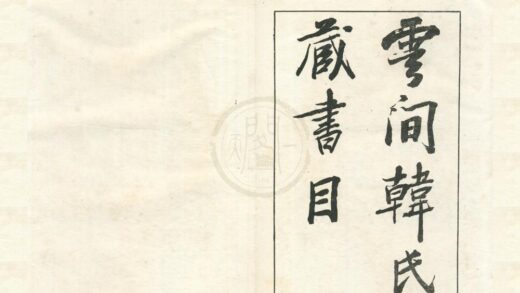 雲間韓氏
藏書目